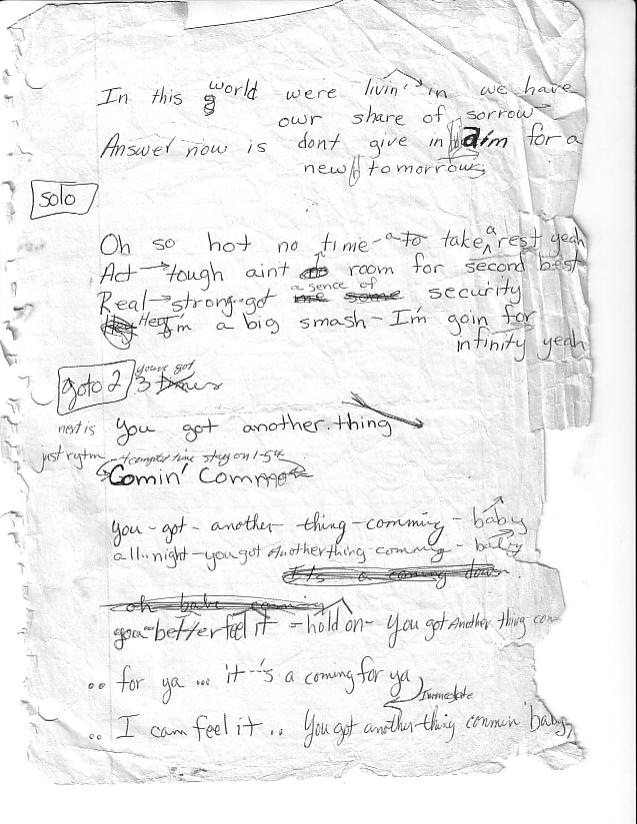 In this world were livin' in we have
owr share of sorrow
Answer now is dont give in aim for a
new tomorrow
solo
Oh so hot no time - to take a rest yeah
Act → tough aint room for second best
Real → strong - got a sence of security
Hey I'm a big smash - I'm goin for
infinity yeah
goto 2 youve got
3 times
next is You got another thing
just rytm
Comin'
You - got - another thing - comming - baby
all.. night - you got Another thing comming - baby
Its a coming down
oh babe coming
you better feel it - hold on - You got Another thing com
.. for ya ... it--'s a coming for ya
Immediate
.. I cam feel it .. You got another thing conmin' baby,